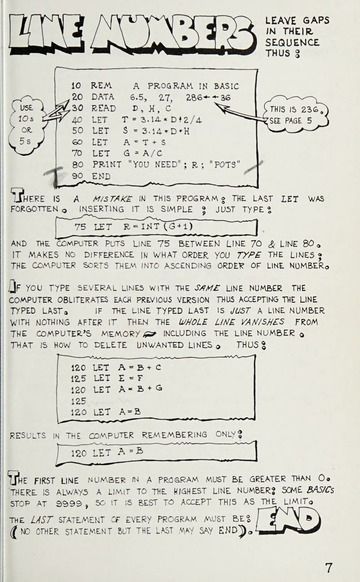 LINE NUMBERS
LEAVE GAPS
IN THEIR
SEQUENCE
THUS:
10 REM A PROGRAM IN BASIC
20 DATA 6.5, 27, 286←36
30 READ D, H, C
40 LET T = 3.14*D↑2/4
50 LET S = 3.14*D*H
60 LET A = T + S
70 LET G = A/C
80 PRINT "YOU NEED"; R; "POTS"
90 END
USE
10s
OR
5s
THIS IS 236,
SEE PAGE 5
THERE IS A MISTAKE IN THIS PROGRAM; THE LAST LET WAS
FORGOTTEN. INSERTING IT IS SIMPLE; JUST TYPE:
75 LET R = INT (G+1)
AND THE COMPUTER PUTS LINE 75 BETWEEN LINE 70 & LINE 80.
IT MAKES NO DIFFERENCE IN WHAT ORDER YOU TYPE THE LINES;
THE COMPUTER SORTS THEM INTO ASCENDING ORDER OF LINE NUMBER.
IF YOU TYPE SEVERAL LINES WITH THE SAME LINE NUMBER THE
COMPUTER OBLITERATES EACH PREVIOUS VERSION THUS ACCEPTING THE LINE
TYPED LAST. IF THE LINE TYPED LAST IS JUST A LINE NUMBER
WITH NOTHING AFTER IT THEN THE WHOLE LINE VANISHES FROM
THE COMPUTER'S MEMORY INCLUDING THE LINE NUMBER.
THAT IS HOW TO DELETE UNWANTED LINES. THUS:
120 LET A = B + C
125 LET E = F
120 LET A = B + G
125
120 LET A = B
RESULTS IN THE COMPUTER REMEMBERING ONLY:
120 LET A = B
THE FIRST LINE NUMBER IN A PROGRAM MUST BE GREATER THAN 0.
THERE IS ALWAYS A LIMIT TO THE HIGHEST LINE NUMBER; SOME BASICs
STOP AT 9999, SO IT IS BEST TO ACCEPT THIS AS THE LIMIT.
THE LAST STATEMENT OF EVERY PROGRAM MUST BE: END
(NO OTHER STATEMENT BUT THE LAST MAY SAY END).
7